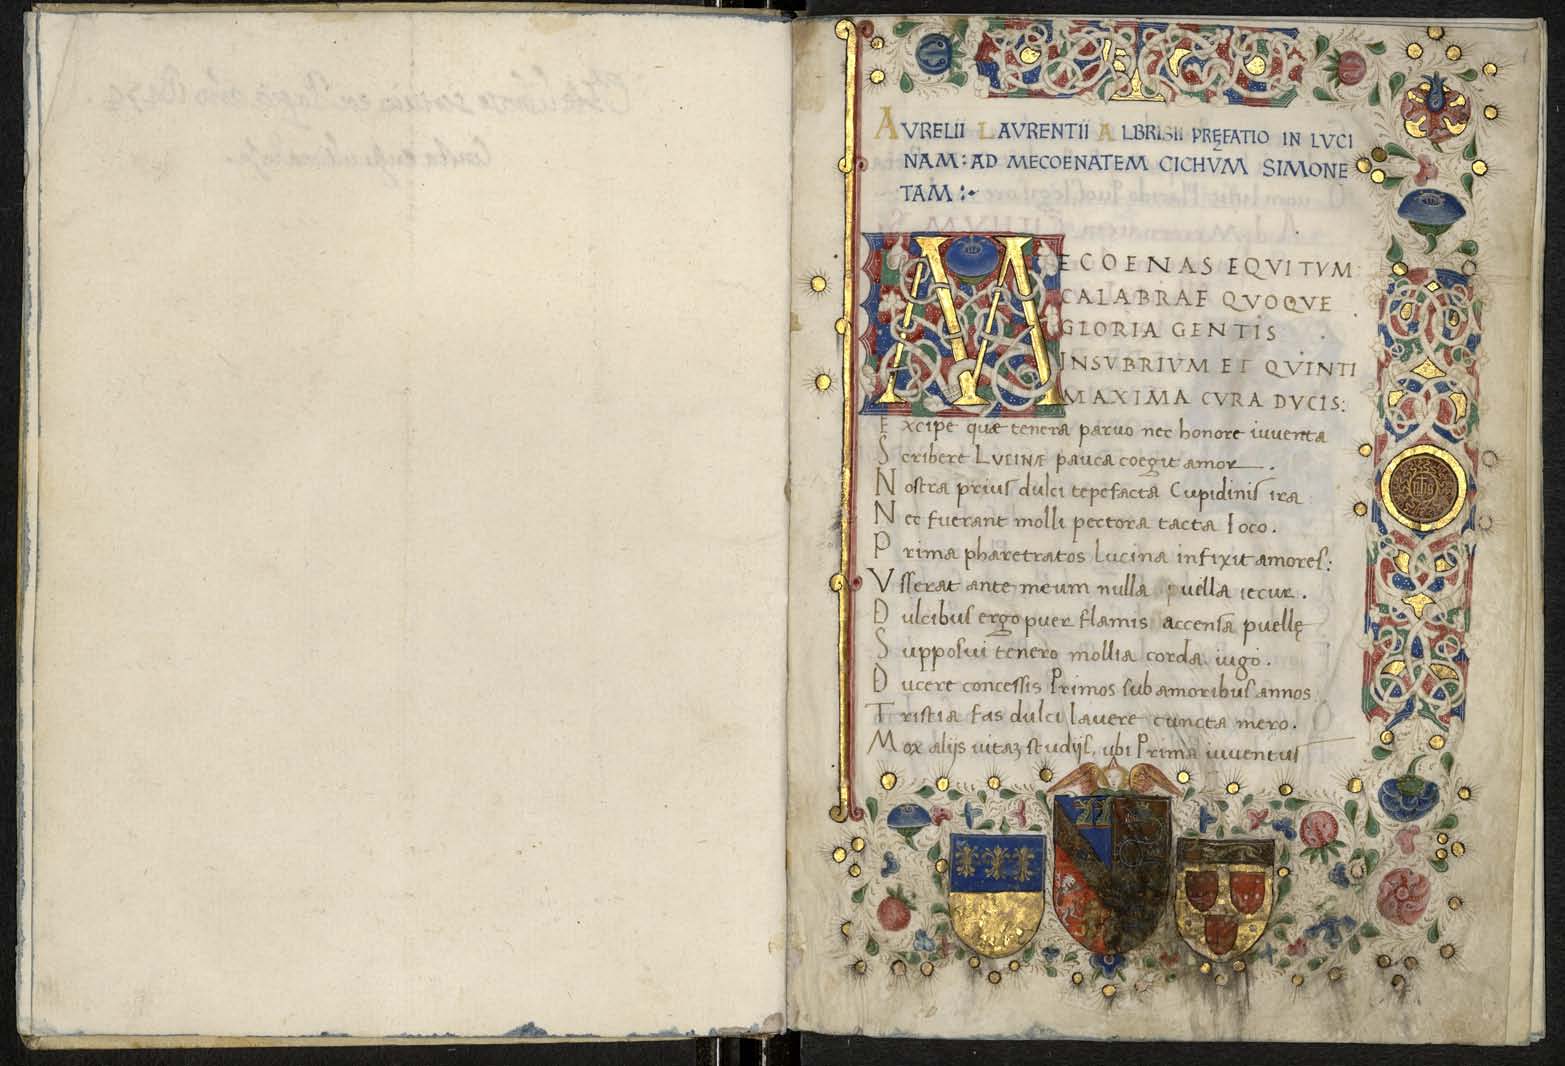 AVRELII LAVRENTII ALBRISII PRĘFATIO IN LVCI
NAM: AD MECOENATEM CICHVM SIMONE
TAM :~
MECOENAS EQVITVM:
CALABRAE QVOQVE
GLORIA GENTIS
INSVBRIVM ET QVINTI
MAXIMA CVRA DVCIS:
Excipe quæ tenera paruo nec honore iuuenta
Scribere LVCINÆ pauca coegit amor.
Nostra prius dulci tepefacta Cupidinis ira
Nec fuerant molli pectora tacta Ioco.
Prima pharetratos Lucina infixit amores:
Vsserat ante meum nulla puella iecur.
Dulcibus ergo puer flamis accensa puellę
Supposui tenero mollia corda iugo.
Ducere concessis Primos sub amoribus annos
Tristia fas dulci lauere cuncta mero.
Mox alijs uitaꝫ studijs, ubi Prima iuuentus